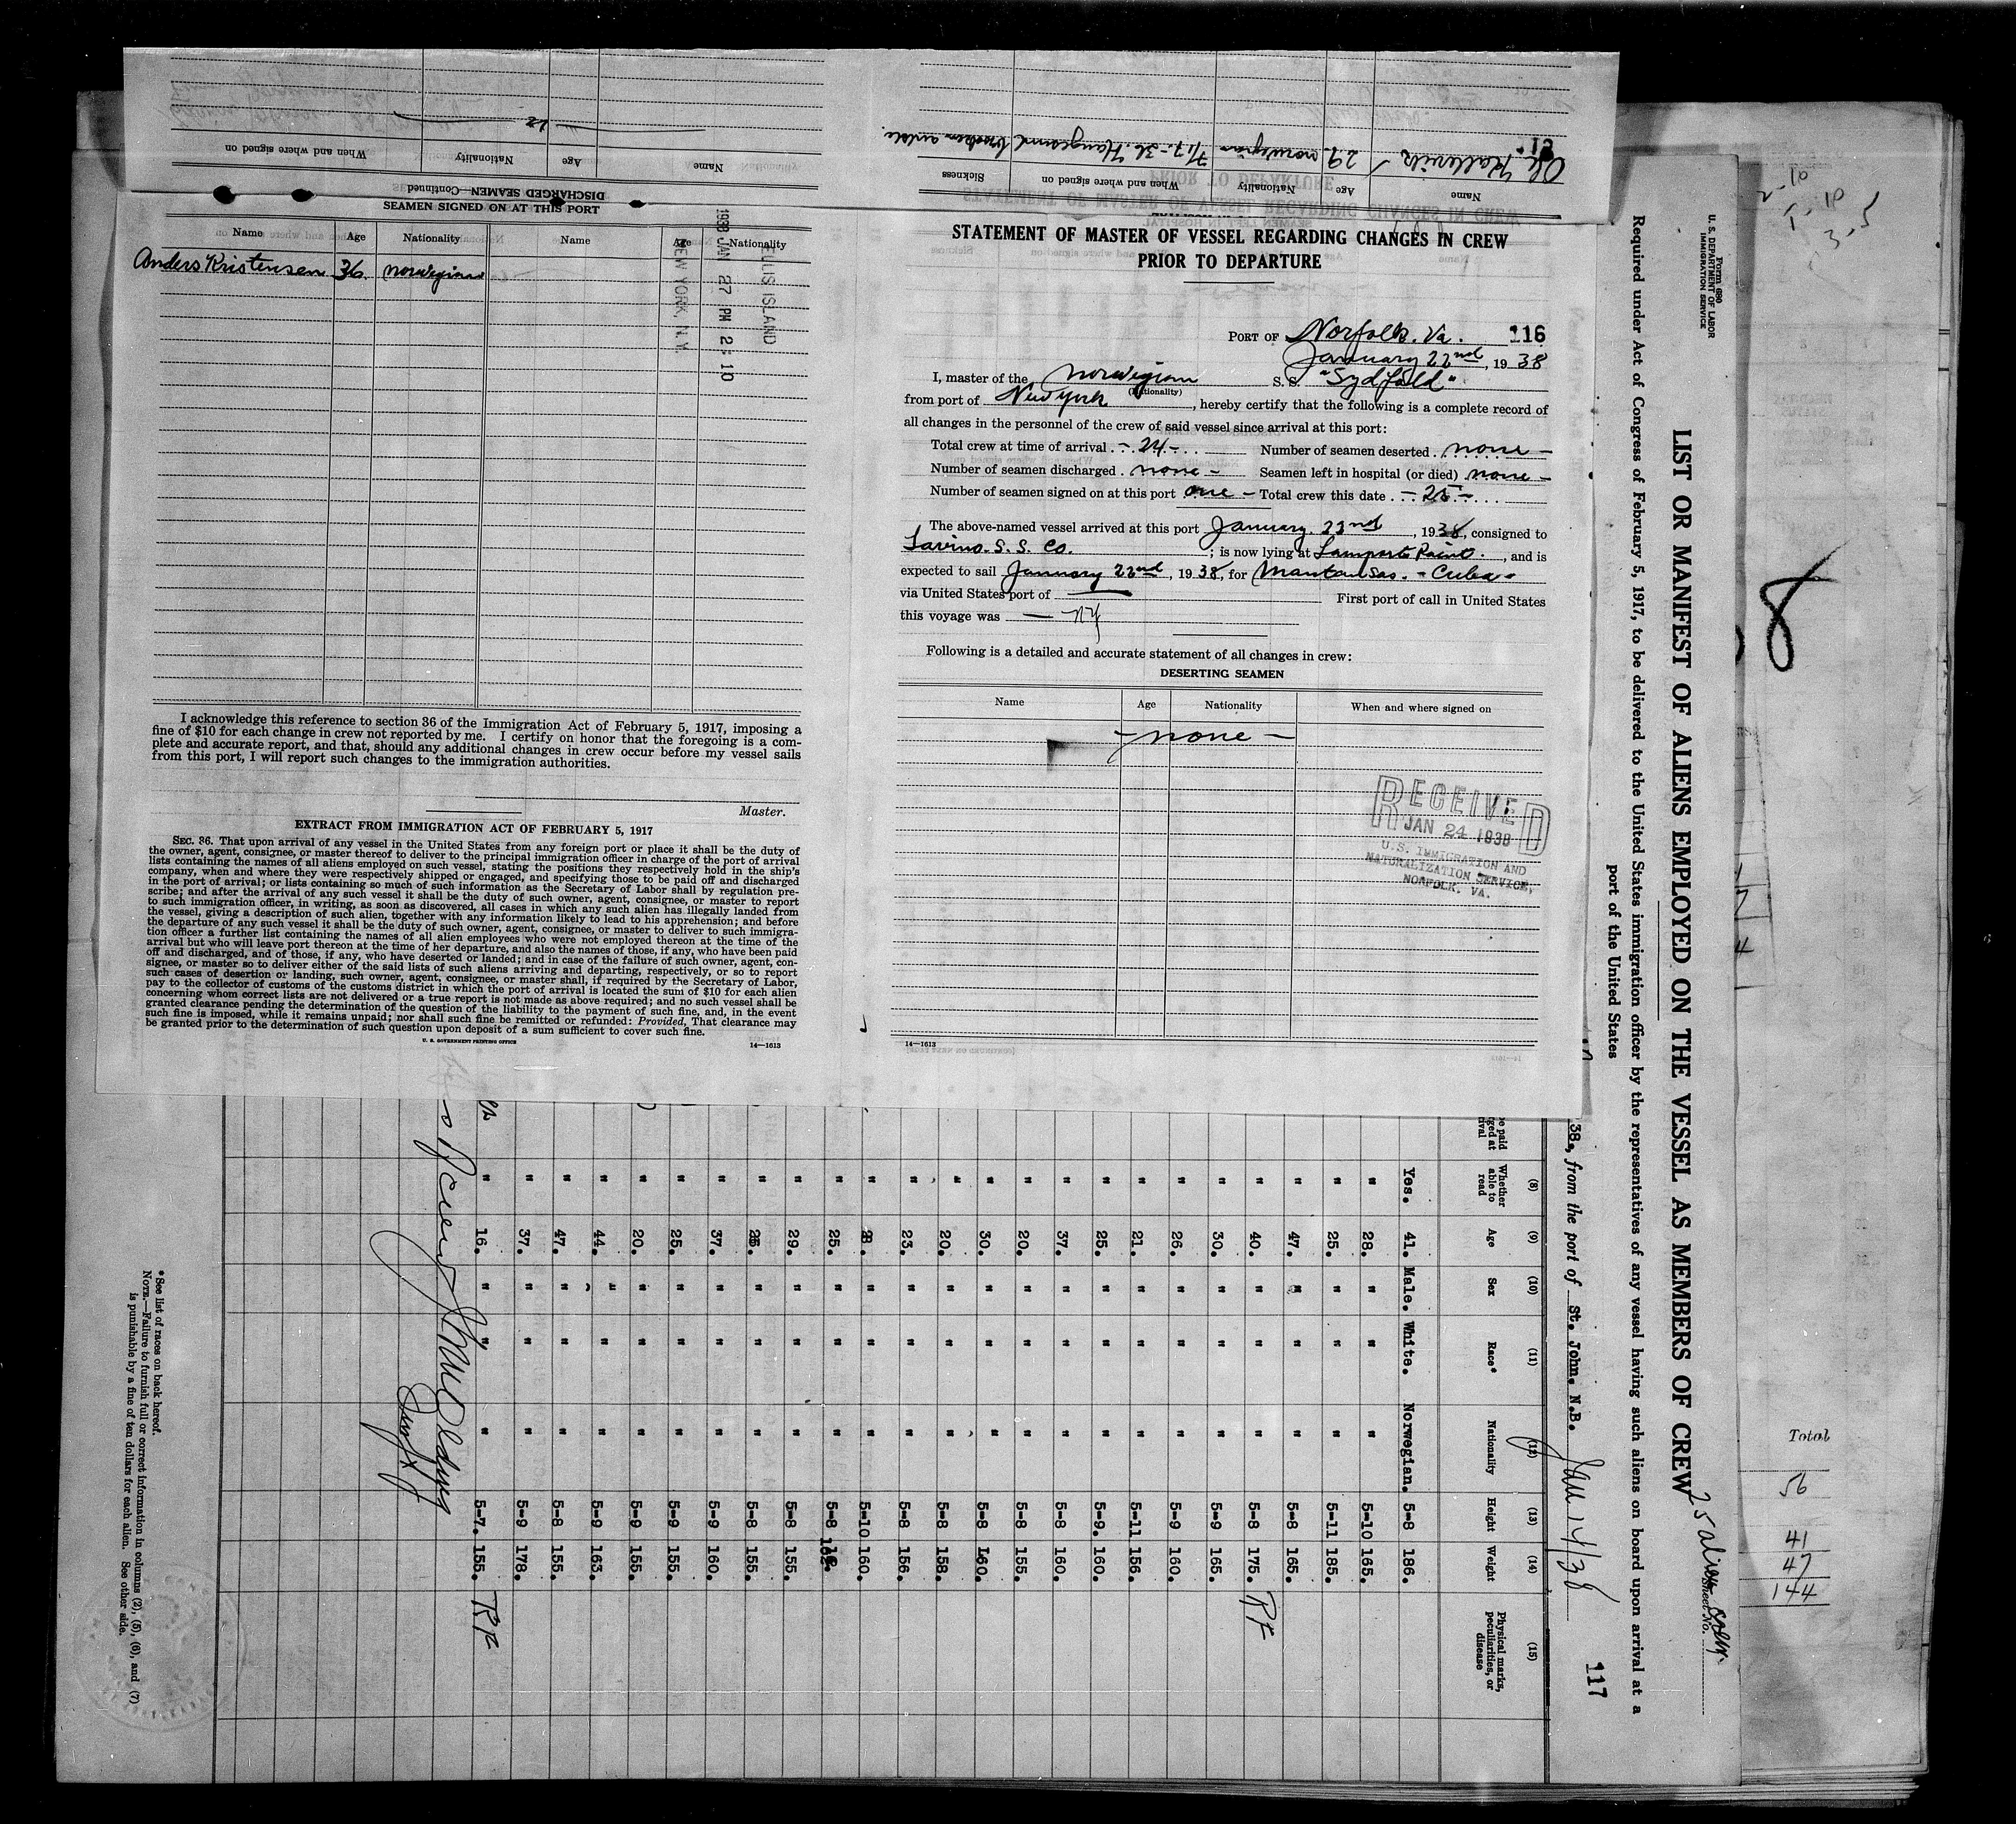 Name Age Nationality When and where signed on Sickness
29 norwegian
Name Age Nationality When and where signed on
DISCHARGED SEAMEN—Continued
SEAMEN SIGNED ON AT THIS PORT
Name Age Nationality Name Age Nationality
Anders Kristensen 36. norwegian
ELLIS ISLAND
1938 JAN 27 PM 2:10
NEW YORK, N.Y.
I acknowledge this reference to section 36 of the Immigration Act of February 5, 1917, imposing a
fine of $10 for each change in crew not reported by me. I certify on honor that the foregoing is a com-
plete and accurate report, and that, should any additional changes in crew occur before my vessel sails
from this port, I will report such changes to the immigration authorities.
Master.
EXTRACT FROM IMMIGRATION ACT OF FEBRUARY 5, 1917
SEC. 36. That upon arrival of any vessel in the United States from any foreign port or place it shall be the duty of
the owner, agent, consignee, or master thereof to deliver to the principal immigration officer in charge of the port of arrival
lists containing the names of all aliens employed on such vessel, stating the positions they respectively hold in the ship's
company, when and where they were respectively shipped or engaged, and specifying those to be paid off and discharged
in the port of arrival; or lists containing so much of such information as the Secretary of Labor shall by regulation pre-
scribe; and after the arrival of any such vessel it shall be the duty of such owner, agent, consignee, or master to report
to such immigration officer, in writing, as soon as discovered, all cases in which any such alien has illegally landed from
the vessel, giving a description of such alien, together with any information likely to lead to his apprehension; and before
the departure of any such vessel it shall be the duty of such owner, agent, consignee, or master to deliver to such immigra-
tion officer a further list containing the names of all alien employees who were not employed thereon at the time of the
arrival but who will leave port thereon at the time of her departure, and also the names of those, if any, who have been paid
off and discharged, and of those, if any, who have deserted or landed; and in case of the failure of such owner, agent, con-
signee, or master so to deliver either of the said lists of such aliens arriving and departing, respectively, or so to report
such cases of desertion or landing, such owner, agent, consignee, or master shall, if required by the Secretary of Labor,
pay to the collector of customs of the customs district in which the port of arrival is located the sum of $10 for each alien
concerning whom correct lists are not delivered or a true report is not made as above required; and no such vessel shall be
granted clearance pending the determination of the question of the liability to the payment of such fine, and, in the event
such fine is imposed, while it remains unpaid; nor shall such fine be remitted or refunded: Provided, That clearance may
be granted prior to the determination of such question upon deposit of a sum sufficient to cover such fine.
U. S. GOVERNMENT PRINTING OFFICE 14—1613
STATEMENT OF MASTER OF VESSEL REGARDING CHANGES IN CREW
PRIOR TO DEPARTURE
PORT OF Norfolk. Va. 116
January 22nd, 1938
I, master of the norwegian S. S. "Sydfold"
(Nationality)
from port of New York, hereby certify that the following is a complete record of
all changes in the personnel of the crew of said vessel since arrival at this port:
Total crew at time of arrival - 24 - Number of seamen deserted none -
Number of seamen discharged none - Seamen left in hospital (or died) none -
Number of seamen signed on at this port one - Total crew this date - 25 -
The above-named vessel arrived at this port January. 22nd, 1938, consigned to
Lavino. S. S. Co. ; is now lying at Lamperts Point., and is
expected to sail January 22nd, 1938, for Mantansas. - Cuba -
via United States port of — First port of call in United States
this voyage was — NY
Following is a detailed and accurate statement of all changes in crew:
DESERTING SEAMEN
Name Age Nationality When and where signed on
- none -
RECEIVED
JAN 24 1938
U.S. IMMIGRATION AND
NATURALIZATION SERVICE,
NORFOLK, VA.
14—1613
Form 680
U. S. DEPARTMENT OF LABOR
IMMIGRATION SERVICE
LIST OR MANIFEST OF ALIENS EMPLOYED ON THE VESSEL AS MEMBERS OF CREW
25 alien crew.
Sheet No.
Required under Act of Congress of February 5, 1917, to be delivered to the United States immigration officer by the representatives of any vessel having such aliens on board upon arrival at a
port of the United States
117
38, from the port of St. John. N.B. Jan 14/38
(8) (9) (10) (11) (12) (13) (14) (15)
Whether able to read Age Sex Race* Nationality Height Weight Physical marks, peculiarities, or disease
Yes. 41. Male. White. Norwegian. 5-8 186.
" 28. " " " 5-10 165.
" 25. " " " 5-11 185.
" 47. " " " 5-8 165.
" 40. " " " 5-8 175. RF
" 30. " " " 5-9 165.
" 26. " " " 5-9 160.
" 21. " " " 5-11 156.
" 25. " " " 5-9. 160.
" 37. " " " 5-8 160.
" 20. " " " 5-8 155.
" 30. " " " 5-8 160.
" 20. " " " 5-8 158.
" 23. " " " 5-8 156.
" " " " 5-10 160.
" 25. " " " 5-8
" 29. " " " 5-8 155.
" " " " 5-8 155.
" 37. " " " 5-9 160.
" 25. " " " 5-9 155.
" 20. " " " 5-9 155.
" 44. " " " 5-9 163.
" 47. " " " 5-8 155.
" 37. " " " 5-9 178.
" 16. " " " 5-7. 155. RF
* See list of races on back hereof.
NOTE.—Failure to furnish full or correct information in columns (2), (5), (6), and (7)
is punishable by a fine of ten dollars for each alien. See other side.
8
Total
56
41
47
144